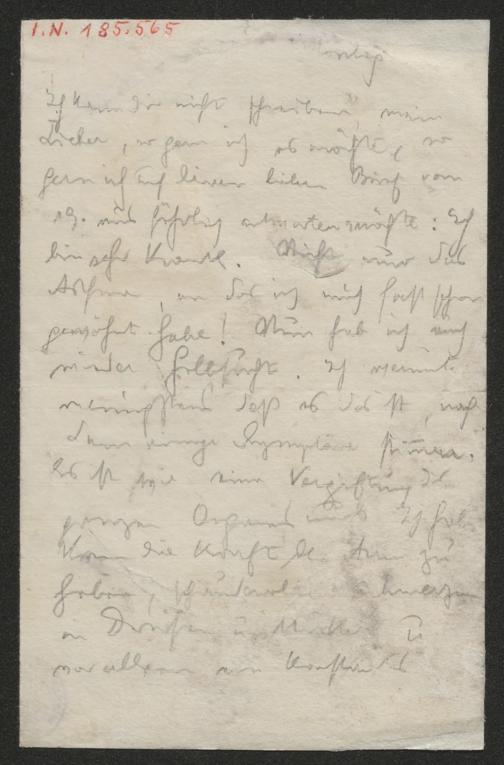 I.N. 185.565
Ich kann dir nicht schreiben, mein
Lieber, so gern ich es möchte, so
gern ich auf deinen lieben Brief vom
19. ausführlich antworten möchte: Ich
bin sehr krank. Nicht nur das
Asthma, an das ich mich fast schon
gewöhnt habe! Nun hab ich auch
wieder Gelbsucht. Ich vermute
wenigstens daß es das ist, nach
dem einige Symptome stimmen.
Es ist wie eine Vergiftung des
ganzen Organismus. Ich habe
kaum die Kraft den Arm zu
heben, Schmerzen
in Drüsen u.
vor allem ein